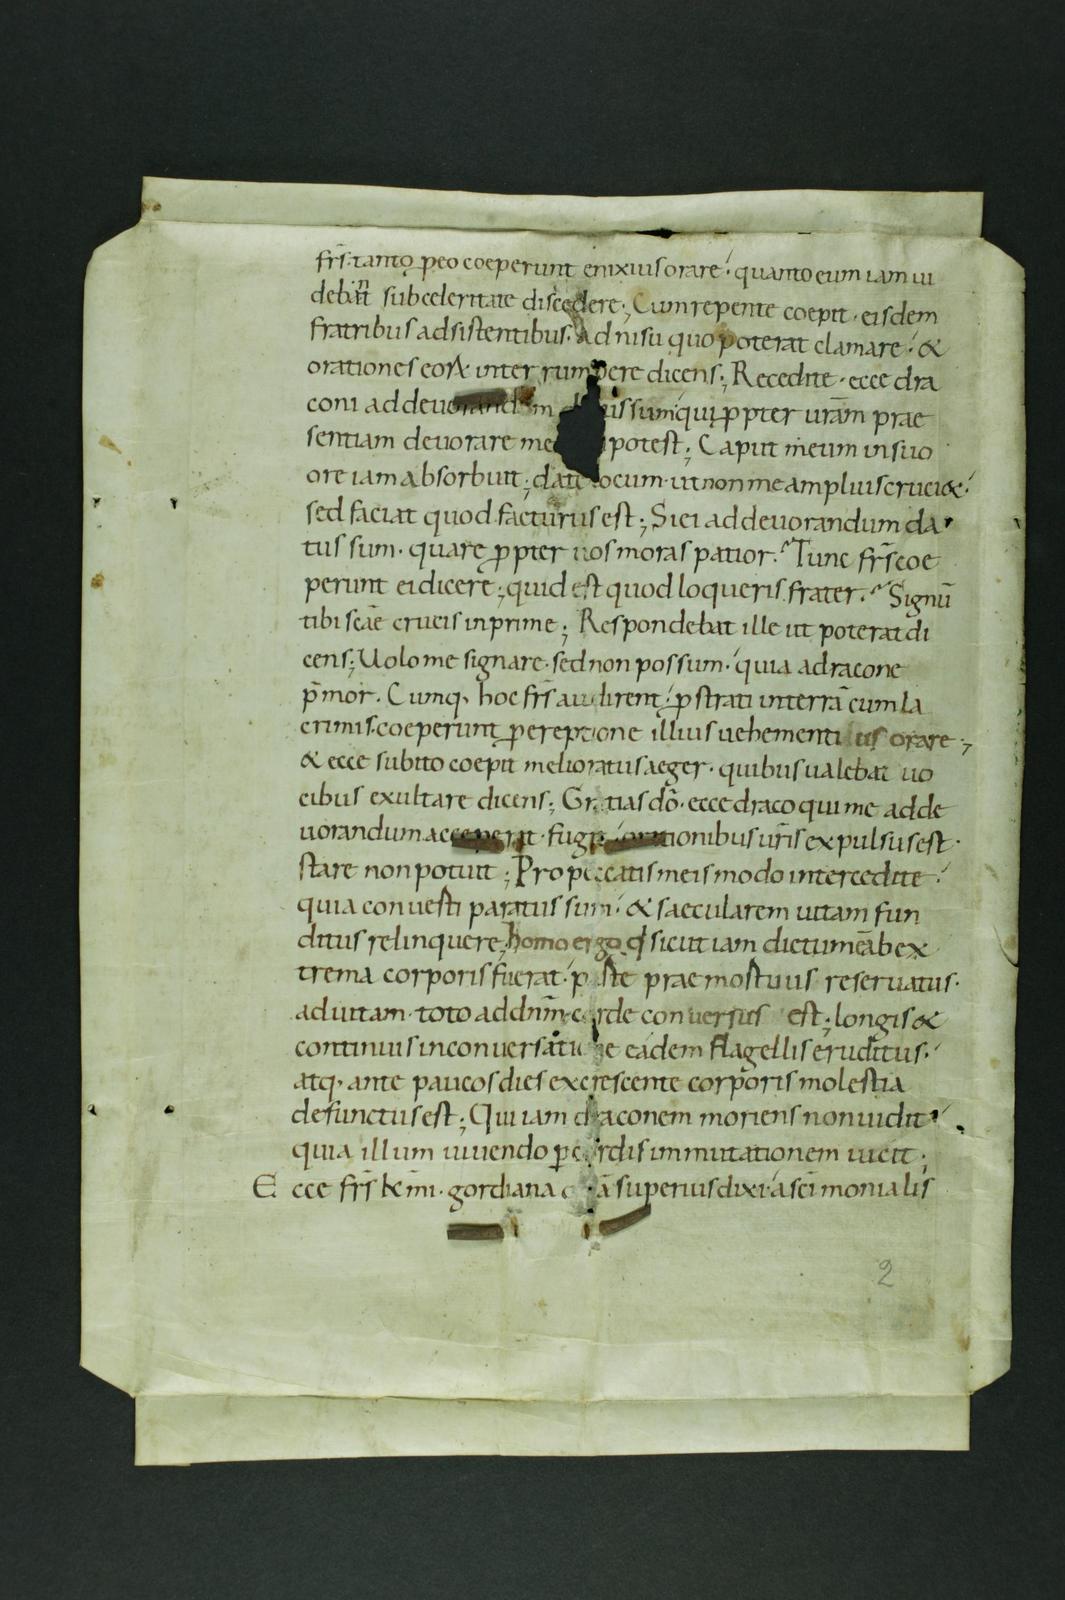 frs̄. tanto p eo coeperunt enixius orare. quanto eum iam ui
debant sub celeritate discedere; Cum repente coepit. eisdem
fratribus adsistentibus. Adnisu quo poterat clamare. &
orationes eorꝝ inter rumpere dicens; Recedite. ecce dra
coni ad deuorandum sum qui ppter uram̄ prae
sentiam deuorare me potest; Caput meum in suo
ore iam absorbuit; date locum. ut non me amplius cruci&.
sed faciat quod facturus est; Si ei ad deuorandum da
tus sum. quare ppter uos moras patior. Tunc frs̄ coe
perunt ei dicere; quid est quod loqueris frater. Signū
tibi scāe crucis inprime; Respondebat ille ut poterat di
cens; Uolo me signare. sed non possum. quia a dracone
p̄mor. Cumq, hoc frs̄ audirent. pstrati in terrā cum la
crimis. coeperunt p ereptione illius uehementius orare;
& ecce subito coepit melioratus aeger. quibus ualebat uo
cibus exultare dicens; Gratias dō. ecce draco qui me ad de
uorandum acceperat. fugit. orationibus uris̄ expulsus est.
stare non potuit; Pro peccatis meis modo intercedite.
quia conuesti paratus sum. & saecularem uitam fun
ditus relinquere; homo ergo q sicut iam dictum ē ab ex
trema corporis fuerat. parte praemostuus reseruatus.
ad uitam. toto ad dnm̄. corde conuersus est; longis &
continuis in conuersatione eadem flagellis eruditus.
atq, ante paucos dies excrescente corporis molestia
defunctus est; Qui iam draconem moriens non uidit
quia illum uiuendo p cordis inmutationem uicit.
Ecce frs̄ km̄i. gordiana quā superius dixi. a scīmonialis
2